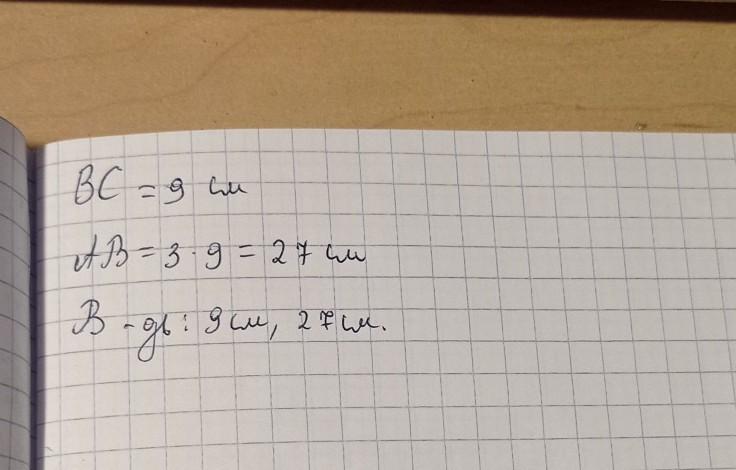 BC = 9 см
AB = 3 · 9 = 27 см
В-дь: 9 см, 27 см.